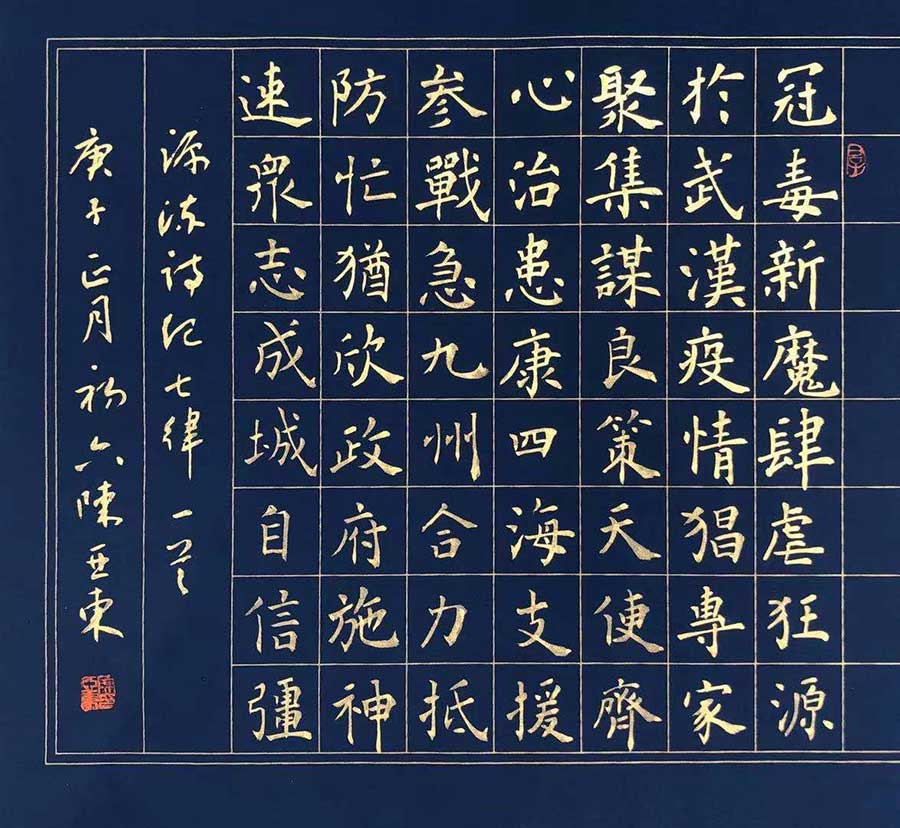 冠毒新魔肆虐狂源
於武漢疫情猖專家
聚集謀良策天使齊
心治患康四海支援
参戰急九州合力抵
防忙猶欣政府施神
速眾志成城自信彊
诗七律一首
庚子正月初六陳亜東